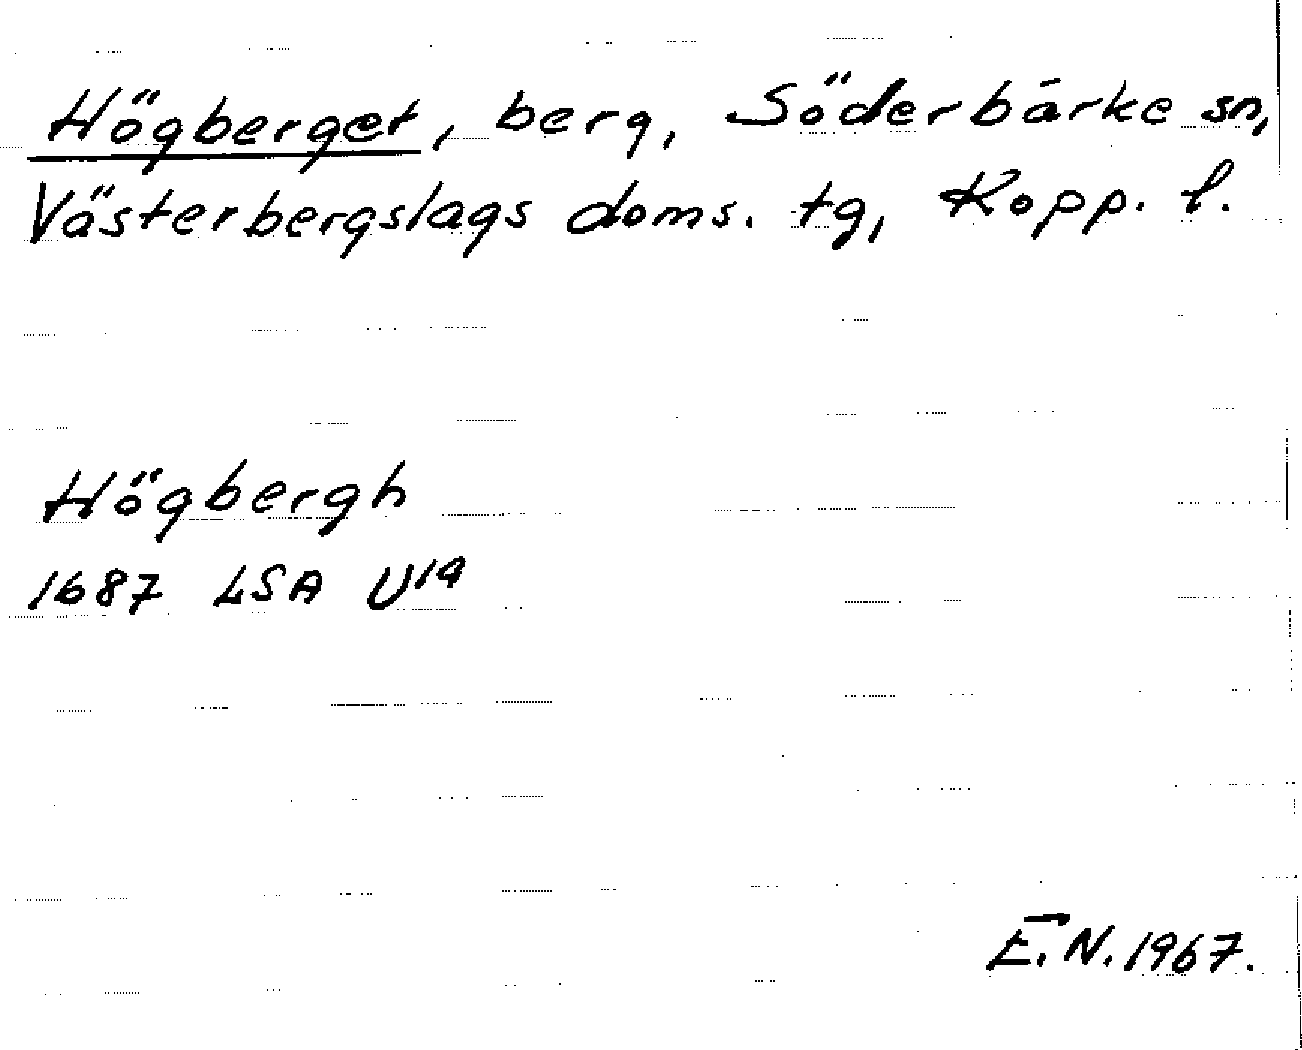 Högberget, berg, Söderbärke sn,
Västerbergslags doms. tg, Kopp. l.
Högbergh
1687 LSA U19
E.N. 1967.